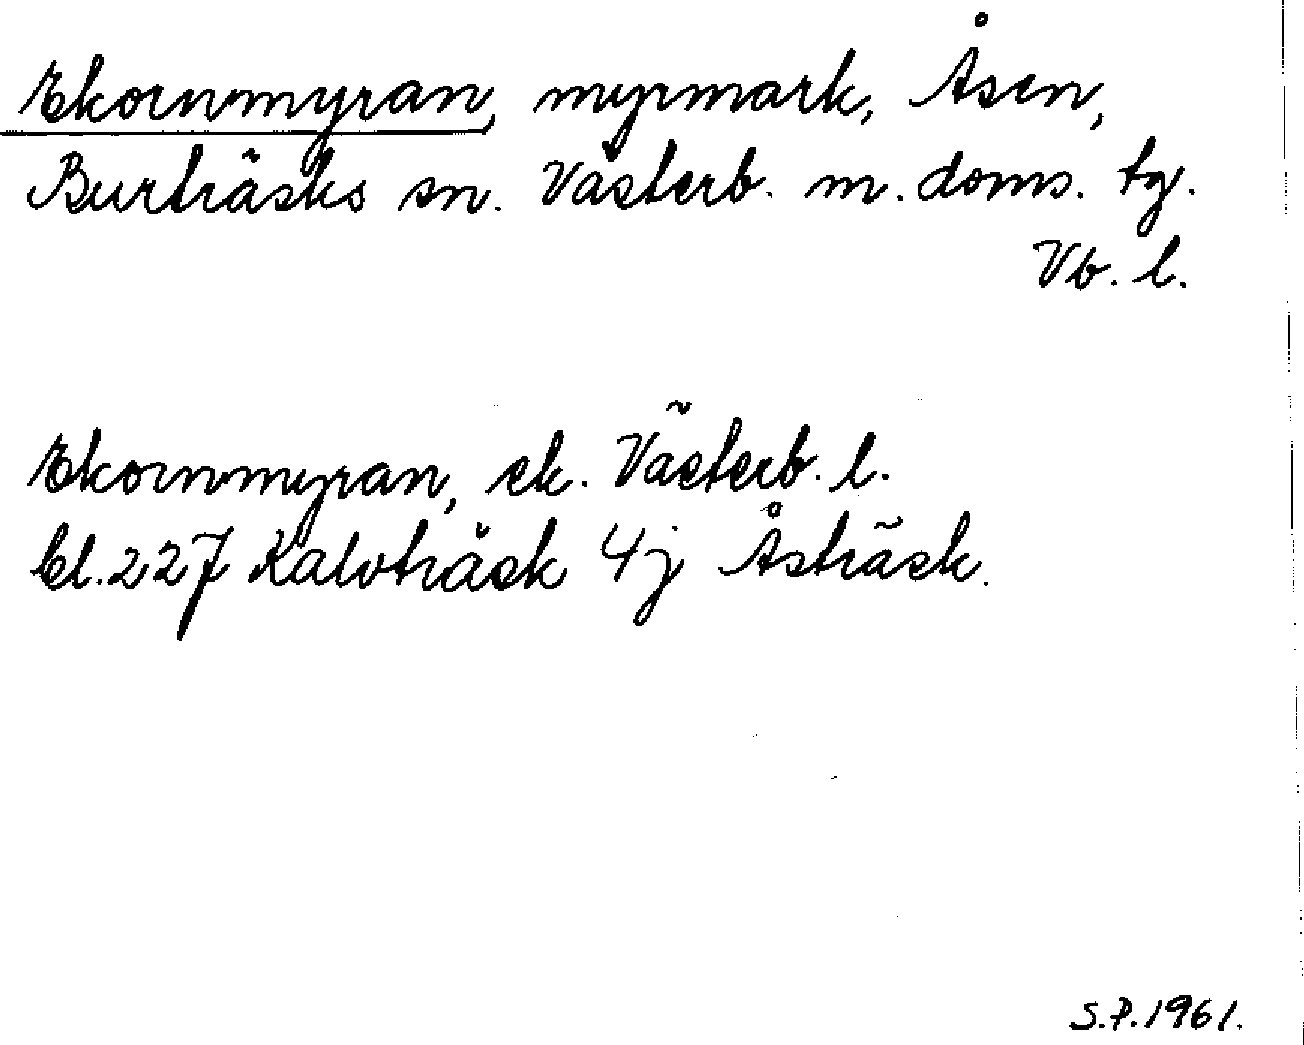 Ekornmyran, myrmark, Åsen,
Burträsks sn. Västerb. m. doms. tg.
Vb. l.
Ekornmyran, ek. Västerb. l.
bl. 227 Kalvträsk 4j Åsträsk.
S.P. 1961.